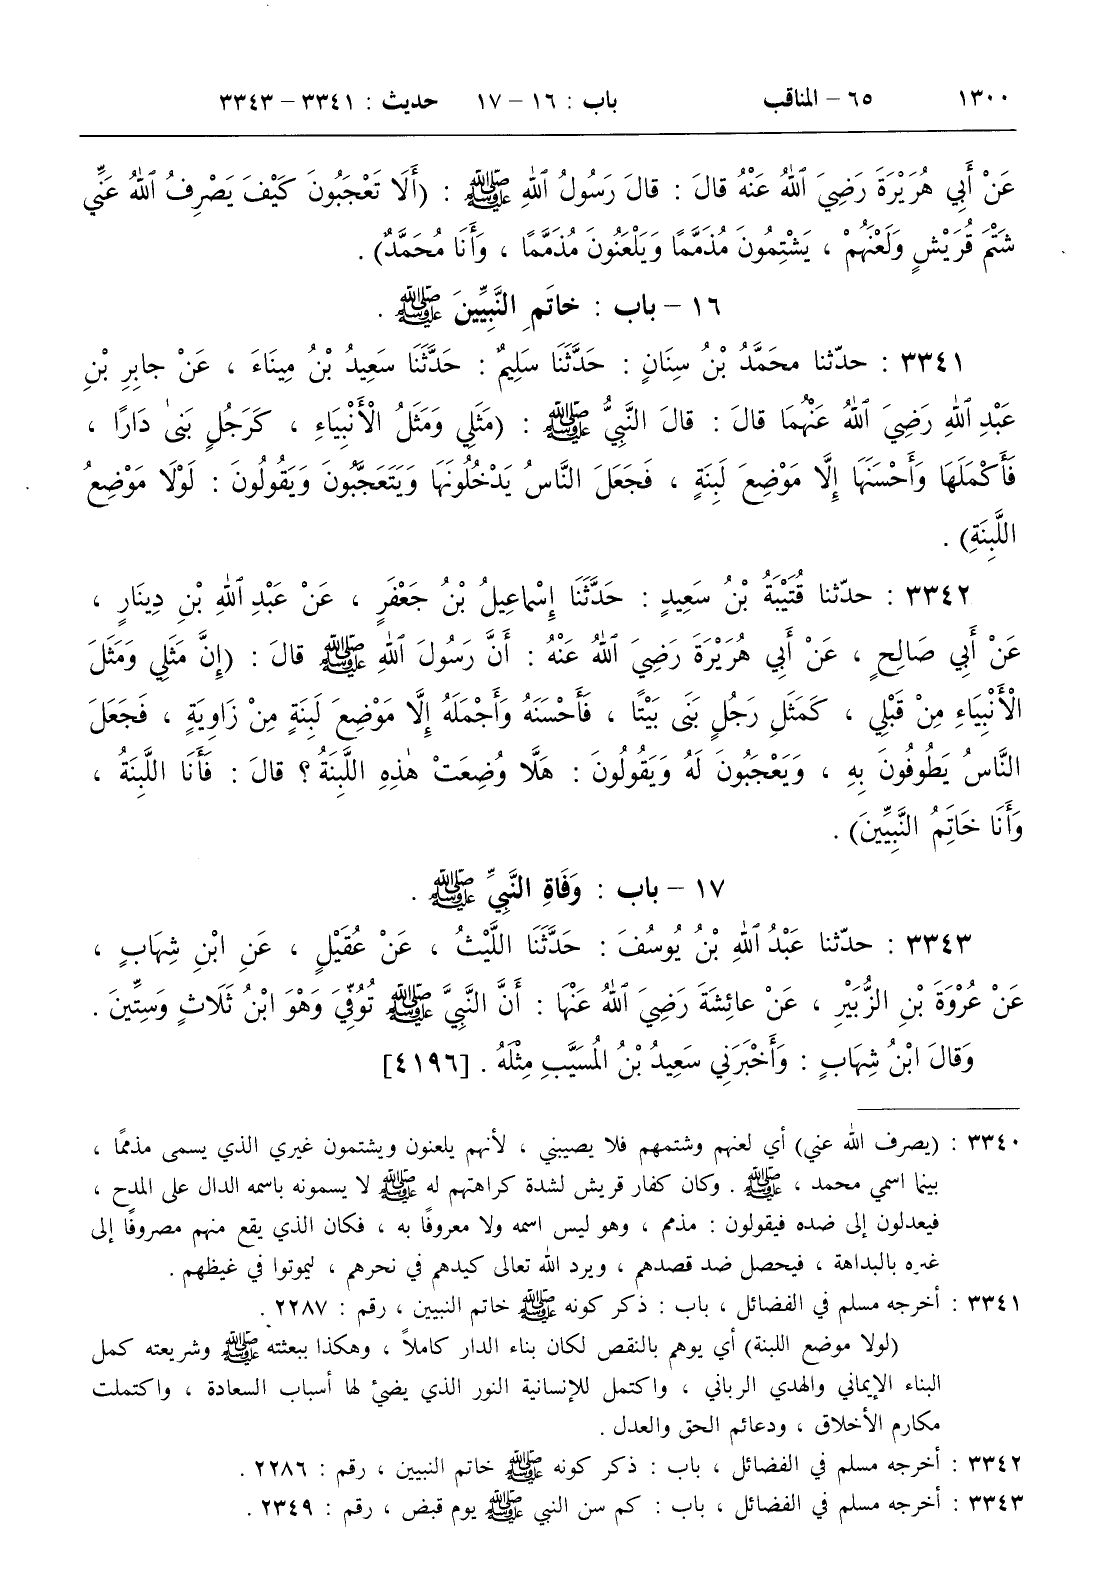 ١٣٠٠ ٦٥ - المناقب باب : ١٦ - ١٧ حديث : ٣٣٤١ - ٣٣٤٣
عَنْ أَبِي هُرَيْرَةَ رَضِيَ ٱللهُ عَنْهُ قالَ : قالَ رَسُولُ ٱللهِ ﷺ : (أَلَا تَعْجَبُونَ كَيْفَ يَصْرِفُ ٱللهُ عَنِّي
شَتْمَ قُرَيْشٍ وَلَعْنَهُمْ ، يَشْتِمُونَ مُذَمَّمًا وَيَلْعَنُونَ مُذَمَّمًا ، وَأَنَا مُحَمَّدٌ) .
١٦ - باب : خاتَمِ النَّبِيِّينَ ﷺ .
٣٣٤١ : حدّثنا محَمَّدُ بْنُ سِنَانٍ : حَدَّثَنَا سَلِيمٌ : حَدَّثَنَا سَعِيدُ بْنُ مِينَاءَ ، عَنْ جابِرِ بْنِ
عَبْدِ ٱللهِ رَضِيَ ٱللهُ عَنْهُمَا قالَ : قالَ النَّبِيُّ ﷺ : (مَثَلِي وَمَثَلُ الْأَنْبِيَاءِ ، كَرَجُلٍ بَنىٰ دَارًا ،
فَأَكْمَلَهَا وَأَحْسَنَهَا إِلَّا مَوْضِعَ لَبِنَةٍ ، فَجَعَلَ النَّاسُ يَدْخُلُونَهَا وَيَتَعَجَّبُونَ وَيَقُولُونَ : لَوْلَا مَوْضِعُ
اللَّبِنَةِ) .
٣٣٤٢ : حدّثنا قُتَيْبَةُ بْنُ سَعِيدٍ : حَدَّثَنَا إِسْماعِيلُ بْنُ جَعْفَرٍ ، عَنْ عَبْدِ ٱللهِ بْنِ دِينَارٍ ،
عَنْ أَبِي صَالِحٍ ، عَنْ أَبِي هُرَيْرَةَ رَضِيَ ٱللهُ عَنْهُ : أَنَّ رَسُولَ ٱللهِ ﷺ قالَ : (إِنَّ مَثَلِي وَمَثَلَ
الْأَنْبِيَاءِ مِنْ قَبْلِي ، كَمَثَلِ رَجُلٍ بَنَى بَيْتًا ، فَأَحْسَنَهُ وَأَجْمَلَهُ إِلَّا مَوْضِعَ لَبِنَةٍ مِنْ زَاوِيَةٍ ، فَجَعَلَ
النَّاسُ يَطُوفُونَ بِهِ ، وَيَعْجَبُونَ لَهُ وَيَقُولُونَ : هَلَّا وُضِعَتْ هٰذِهِ اللَّبِنَةُ ؟ قالَ : فَأَنَا اللَّبِنَةُ ،
وَأَنَا خَاتِمُ النَّبِيِّينَ) .
١٧ - باب : وَفَاةِ النَّبِيِّ ﷺ .
٣٣٤٣ : حدّثنا عَبْدُ ٱللهِ بْنُ يُوسُفَ : حَدَّثَنَا اللَّيْثُ ، عَنْ عُقَيْلٍ ، عَنِ ابْنِ شِهَابٍ ،
عَنْ عُرْوَةَ بْنِ الزُّبَيْرِ ، عَنْ عائِشَةَ رَضِيَ ٱللهُ عَنْهَا : أَنَّ النَّبِيَّ ﷺ تُوُفِّيَ وَهْوَ ابْنُ ثَلَاثٍ وَسِتِّينَ .
وَقالَ ابْنُ شِهَابٍ : وَأَخْبَرَنِي سَعِيدُ بْنُ المُسَيَّبِ مِثْلَهُ . [٤١٩٦]
٣٣٤٠ : (يصرف الله عني) أي لعنهم وشتمهم فلا يصيبني ، لأنهم يلعنون ويشتمون غيري الذي يسمى مذممًا ،
بينما اسمي محمد ، ﷺ . وكان كفار قريش لشدة كراهتهم له ﷺ لا يسمونه باسمه الدال على المدح ،
فيعدلون إلى ضده فيقولون : مذمم ، وهو ليس اسمه ولا معروفًا به ، فكان الذي يقع منهم مصروفًا إلى
غيره بالبداهة ، فيحصل ضد قصدهم ، ويرد الله تعالى كيدهم في نحرهم ، ليموتوا في غيظهم .
٣٣٤١ : أخرجه مسلم في الفضائل ، باب : ذكر كونه ﷺ خاتم النبيين ، رقم : ٢٢٨٧ .
(لولا موضع اللبنة) أي يوهم بالنقص لكان بناء الدار كاملاً ، وهكذا ببعثته ﷺ وشريعته كمل
البناء الإيماني والهدي الرباني ، واكتمل للإنسانية النور الذي يضئ لها أسباب السعادة ، واكتملت
مكارم الأخلاق ، ودعائم الحق والعدل .
٣٣٤٢ : أخرجه مسلم في الفضائل ، باب : ذكر كونه ﷺ خاتم النبيين ، رقم : ٢٢٨٦ .
٣٣٤٣ : أخرجه مسلم في الفضائل ، باب : كم سن النبي ﷺ يوم قبض ، رقم : ٢٣٤٩ .